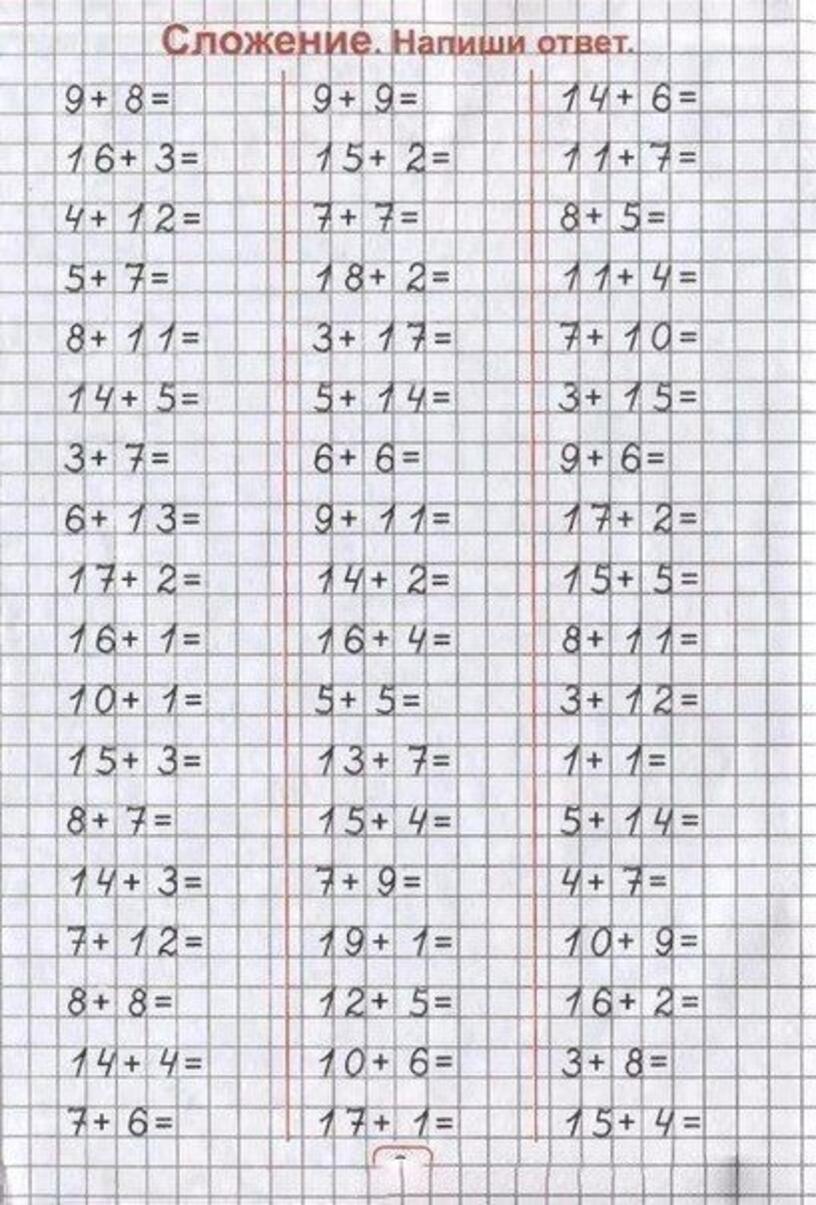 Сложение. Напиши ответ.
9+ 8= 9+ 9= 14+ 6=
16+ 3= 15+ 2= 11+7=
4+ 12= 7+ 7= 8+ 5=
5+ 7= 18+ 2= 11+ 4=
8+ 11= 3+ 17= 7+ 10=
14+ 5= 5+ 14= 3+ 15=
3+ 7= 6+ 6= 9+ 6=
6+ 13= 9+ 11= 17+ 2=
17+ 2= 14+ 2= 15+ 5=
16+ 1= 16+ 4= 8+ 11=
10+ 1= 5+ 5= 3+ 12=
15+ 3= 13+ 7= 1+ 1=
8+ 7= 15+ 4= 5+ 14=
14+ 3= 7+ 9= 4+ 7=
7+ 12= 19+ 1= 10+ 9=
8+ 8= 12+ 5= 16+ 2=
14+ 4= 10+ 6= 3+ 8=
7+ 6= 17+ 1= 15+ 4=